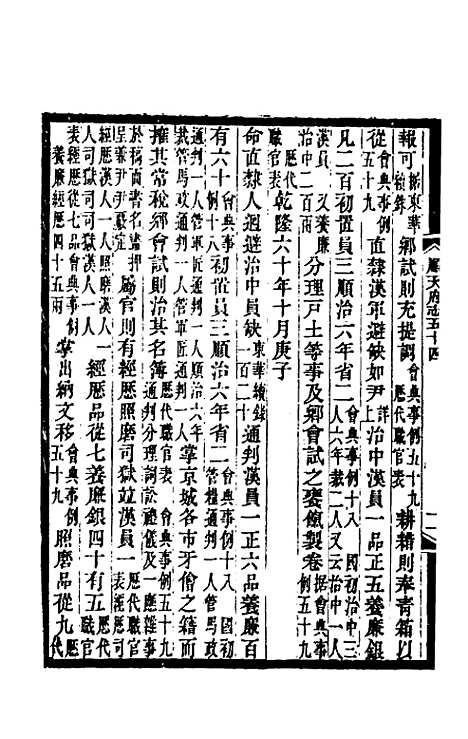 順天府志五十四
報可東華續錄鄉試則充提調會典事例五十九歷代職官表耕耤則奉青箱以
從會典事例五十九直隸漢軍避缺如尹詳上治中漢員一品正五養廉銀
凡二百初置員三順治六年省二會典事例十八國初治中三人六年裁二人又云治中一人
漢員又養廉治中二百兩分理戸土等事及鄉會試之甕飱製卷據會典事例五十九
歷代職官表乾隆六十年十月庚子
命直隸人迴避治中員缺東華續錄一百二十通判漢員一正六品養廉百
有六十會典事例十八初置員三順治六年省二會典事例十八國初管糧通判一人管馬政
通判一人管軍匠通判一人順治六年裁管馬政通判一人管軍匠通判一人掌京城各市牙儈之籍而
榷其常稅鄉會試則治其名簿會典事例五十九歷代職官表通判分理詞訟禮儀及一應雜事
於稿面書名畫押呈兼尹尹嚴定屬官則有經歷照磨司獄竝漢員一歷代職官表經歷司
經歷漢人一人照磨漢人一人司獄司司獄漢人一人經歷品從七養廉銀四十有五歷代職官
表經歷從七品會典事例養廉經歷四十五兩掌出納文移會典事例五十九照磨品從九歷代